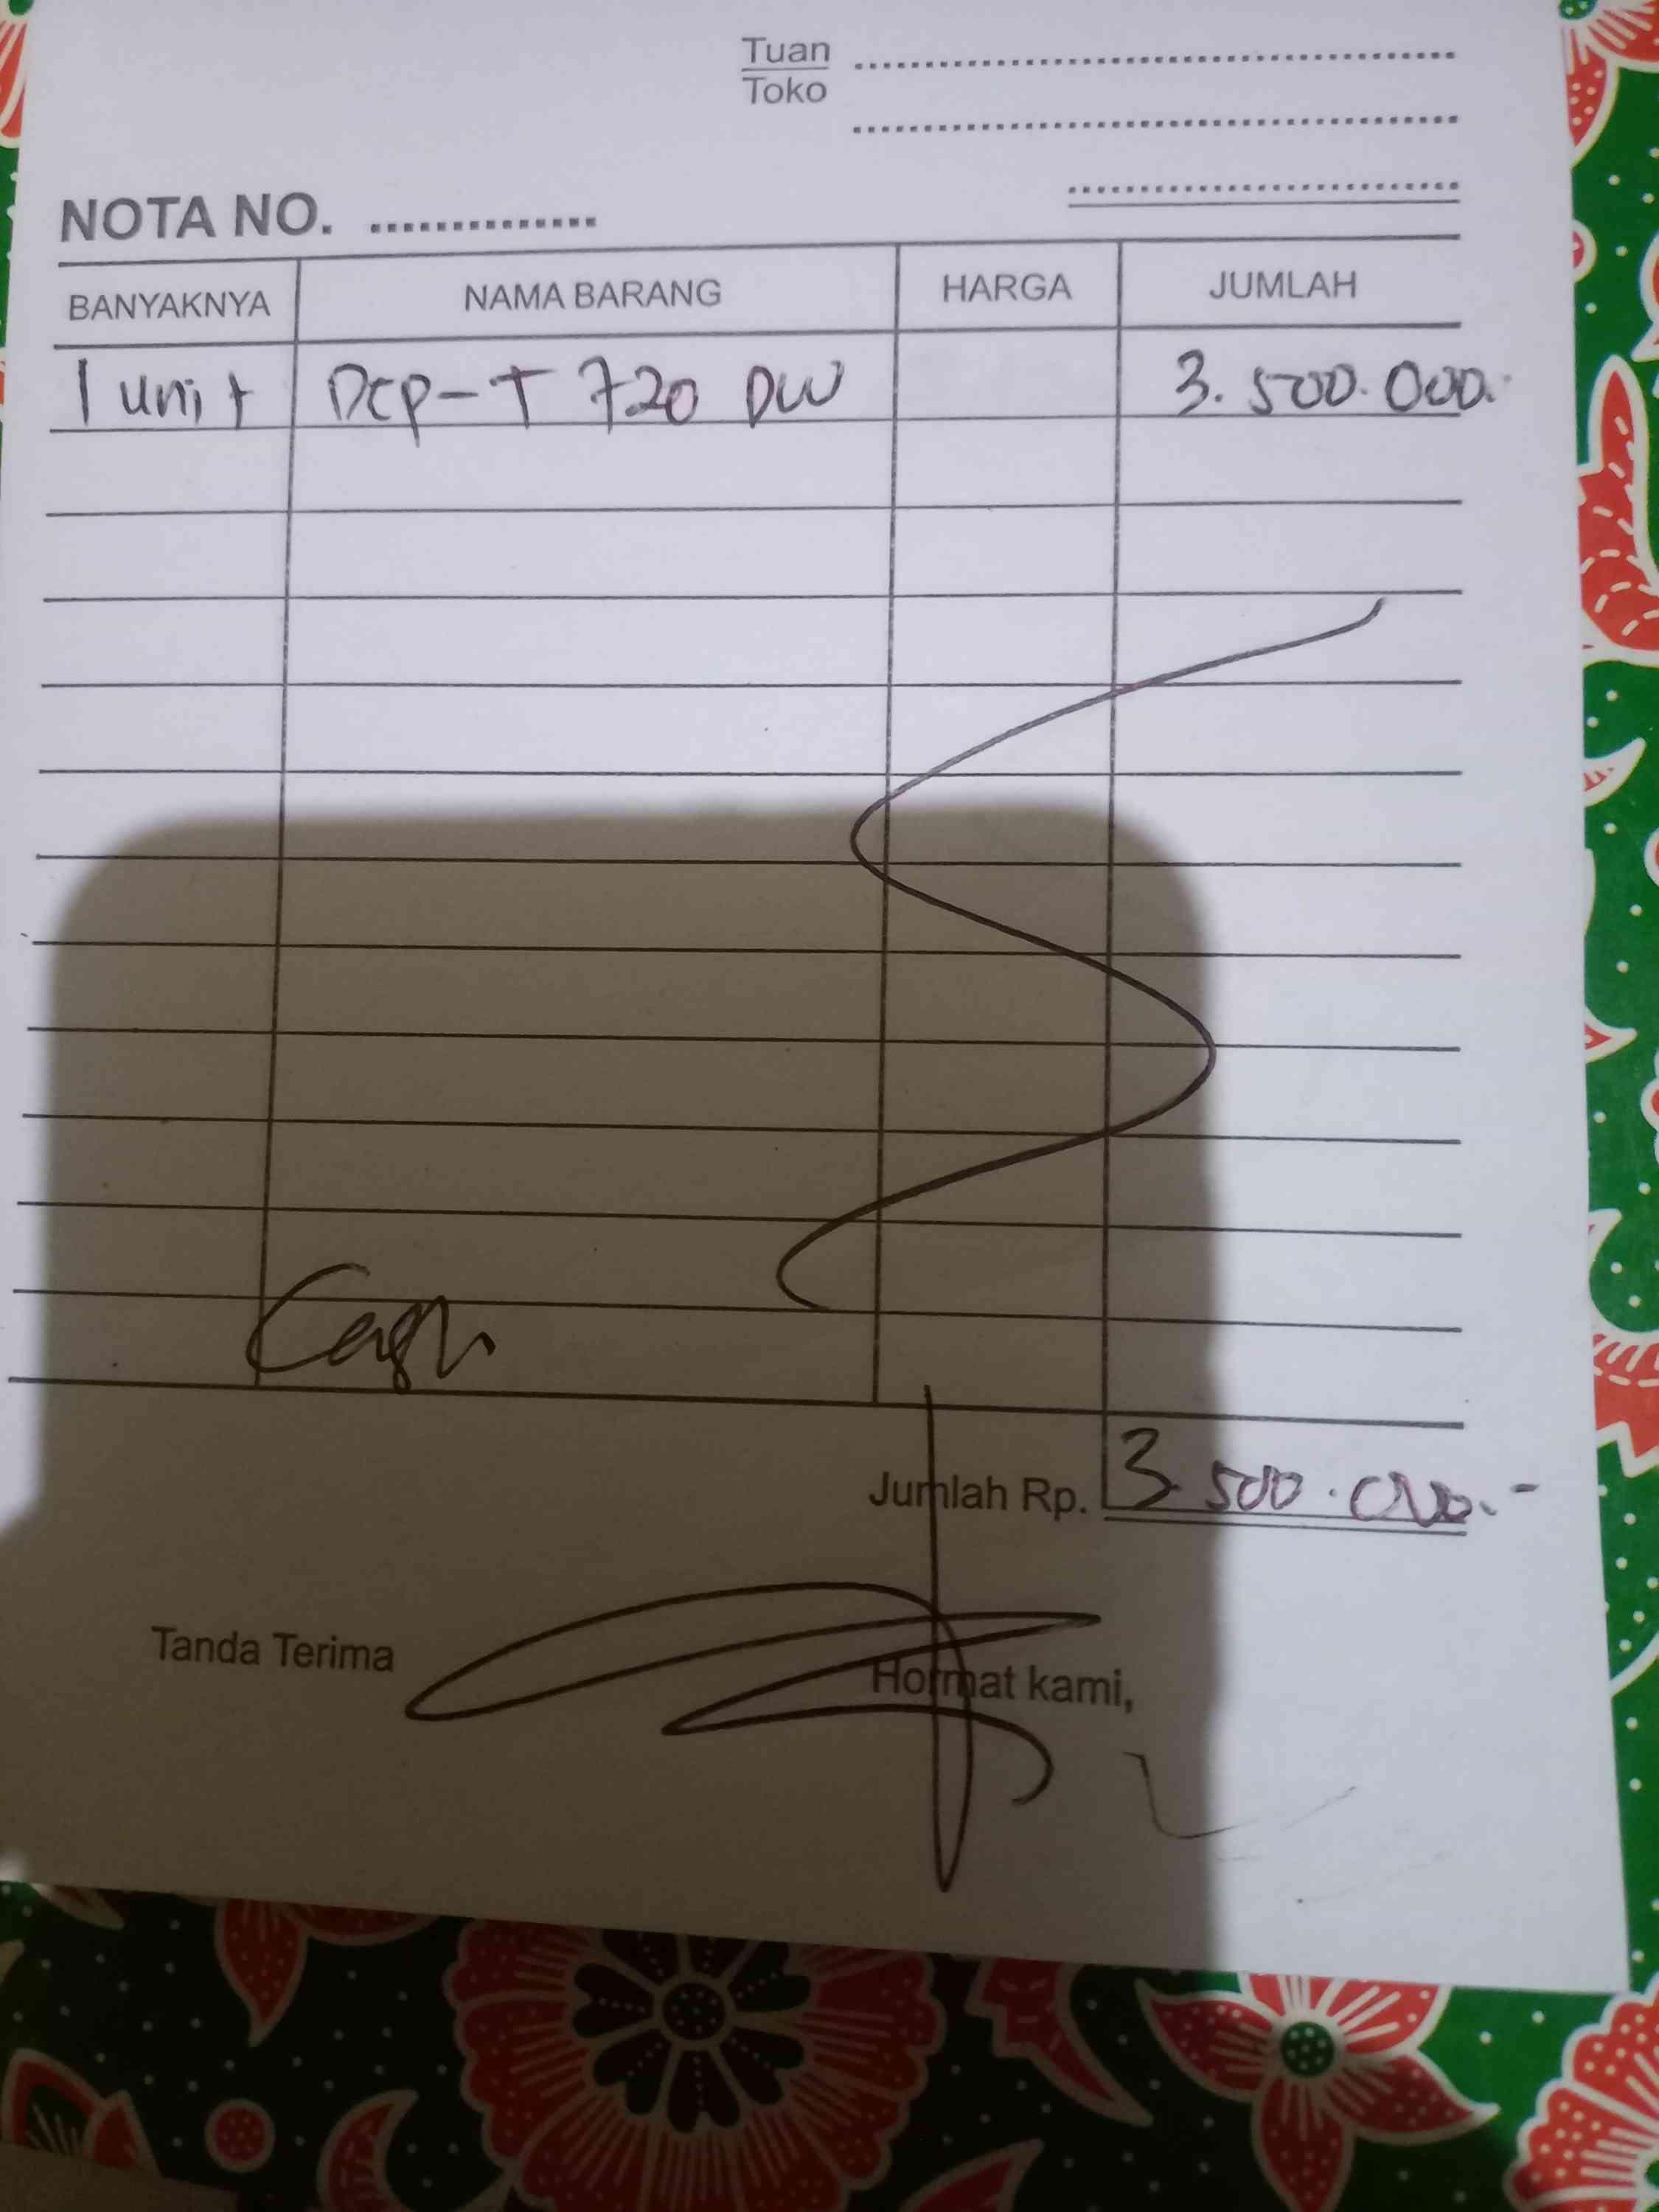 Tuan
Toko
NOTA NO.
BANYAKNYA NAMA BARANG HARGA JUMLAH
1 unit DCP-T 720 DW 3.500.000.-
Cash
Jumlah Rp. 3.500.000.-
Tanda Terima Hormat kami,